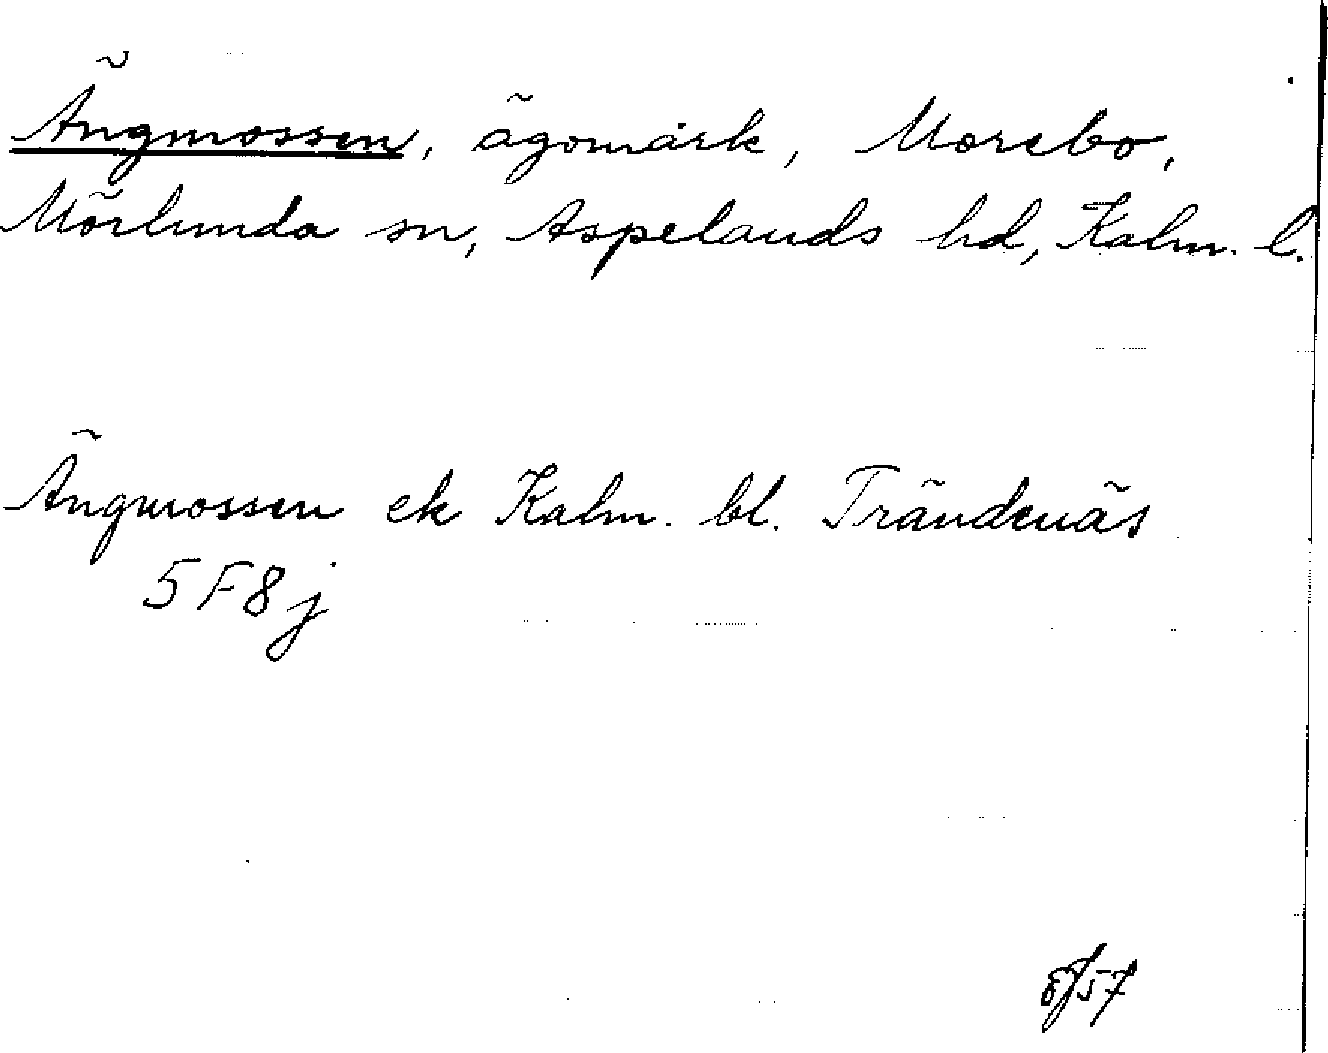 Ängmossen, ägomark, Morebo,
Mörlunda sn, Aspelands hd, Kalm. l.
Ängmossen ek Kalm. bl. Trändenäs
5F8j